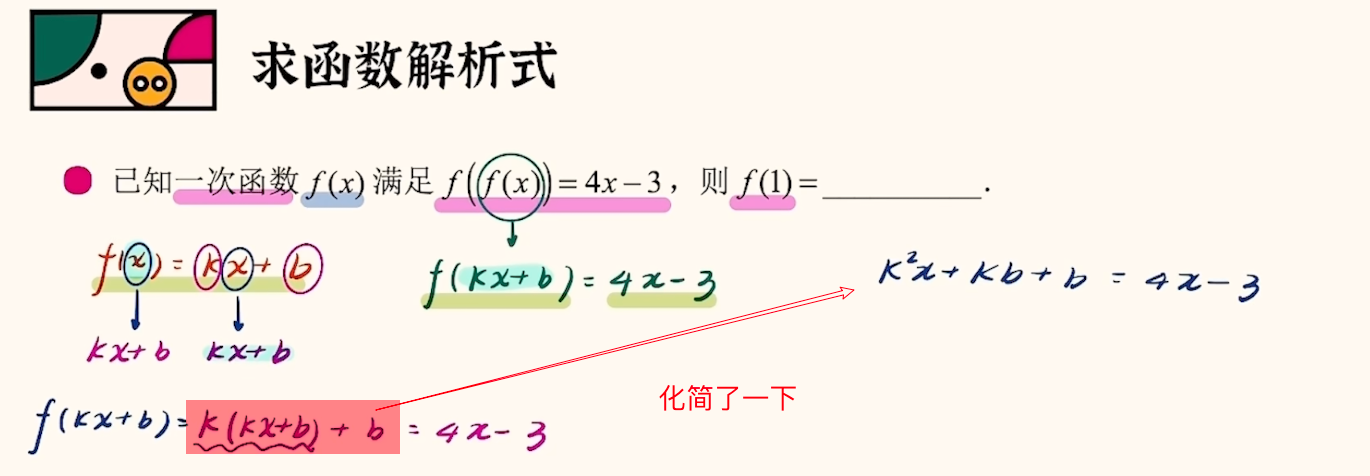 求函数解析式
已知一次函数 f(x) 满足 f(f(x)) = 4x − 3，则 f(1) = ____________.
f(x) = kx + b
f(kx+b) = 4x − 3
k²x + kb + b = 4x − 3
kx+b kx+b
化简了一下
f(kx+b) = k(kx+b) + b = 4x − 3